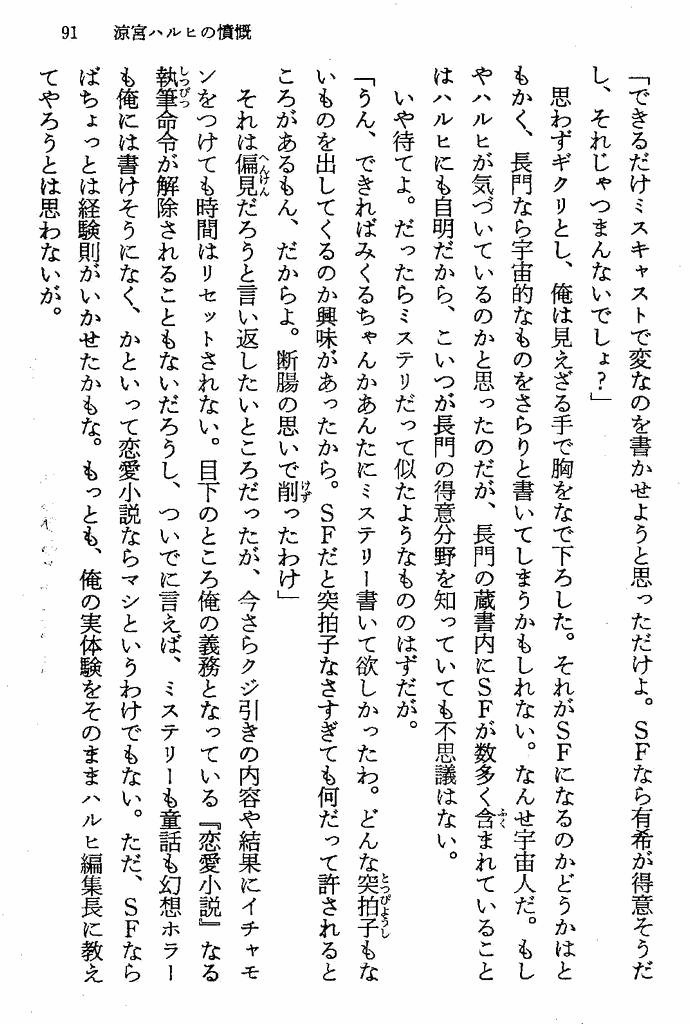 91　涼宮ハルヒの憤慨
「できるだけミスキャストで変なのを書かせようと思っただけよ。ＳＦなら有希が得意そうだ
し、それじゃつまんないでしょ？」
　思わずギクリとし、俺は見えざる手で胸をなで下ろした。それがＳＦになるのかどうかはと
もかく、長門なら宇宙的なものをさらりと書いてしまうかもしれない。なんせ宇宙人だ。もし
やハルヒが気づいているのかと思ったのだが、長門の蔵書内にＳＦが数多く含まれていること
はハルヒにも自明だから、こいつが長門の得意分野を知っていても不思議はない。
　いや待てよ。だったらミステリだって似たようなもののはずだが。
「うん、できればみくるちゃんかあんたにミステリー書いて欲しかったわ。どんな突拍子もな
いものを出してくるのか興味があったから。ＳＦだと突拍子なさすぎても何だって許されると
ころがあるもん、だからよ。断腸の思いで削ったわけ」
　それは偏見だろうと言い返したいところだったが、今さらクジ引きの内容や結果にイチャモ
ンをつけても時間はリセットされない。目下のところ俺の義務となっている『恋愛小説』なる
執筆命令が解除されることもないだろうし、ついでに言えば、ミステリーも童話も幻想ホラー
も俺には書けそうになく、かといって恋愛小説ならマシというわけでもない。ただ、ＳＦなら
ばちょっとは経験則がいかせたかもな。もっとも、俺の実体験をそのままハルヒ編集長に教え
てやろうとは思わないが。